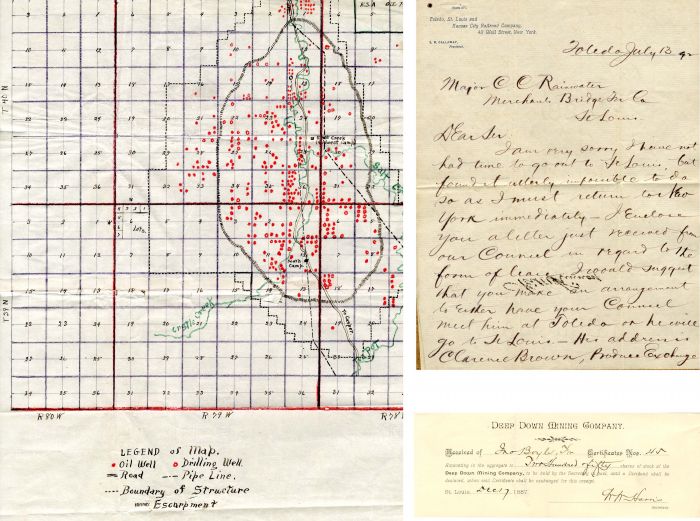 T 40 N
T 39 N
R 80 W
R 79 W
R 78
Salt Creek
Castle Creek
Teapot
To Casper
Camp
Lots
LEGEND of Map.
Oil Well Drilling Well.
Road Pipe Line.
Boundary of Structure
Escarpment
Toledo, St. Louis and
Kansas City Railroad Company,
45 Wall Street, New York.
S. R. CALLAWAY,
President.
Toledo July 13 92
Major C C Rainwater
Merchants Bridge Ter Co
St Louis
Dear Sir
I am very sorry I have not
had time to go out to St Louis but
found it utterly impossible to do
so as I must return to New
York immediately – I Enclose
you a letter just received from
our Counsel in regard to the
form of lease I would suggest
that you make an arrangement
to Either have your Counsel
meet him at Toledo or he will
go to St Louis – His address is
Clarence Brown, Produce Exchange
DEEP DOWN MINING COMPANY.
Received of Jno Boyle, Tr Certificates Nos. 45
Amounting in the aggregate to Two hundred & fifty shares of stock of the
Deep Down Mining Company, to be held by the Secretary in pool, until a Dividend shall be
declared, when said Certificate shall be exchanged for this receipt.
St. Louis, Dec 17 1887.
W. W. Harris
Secretary.